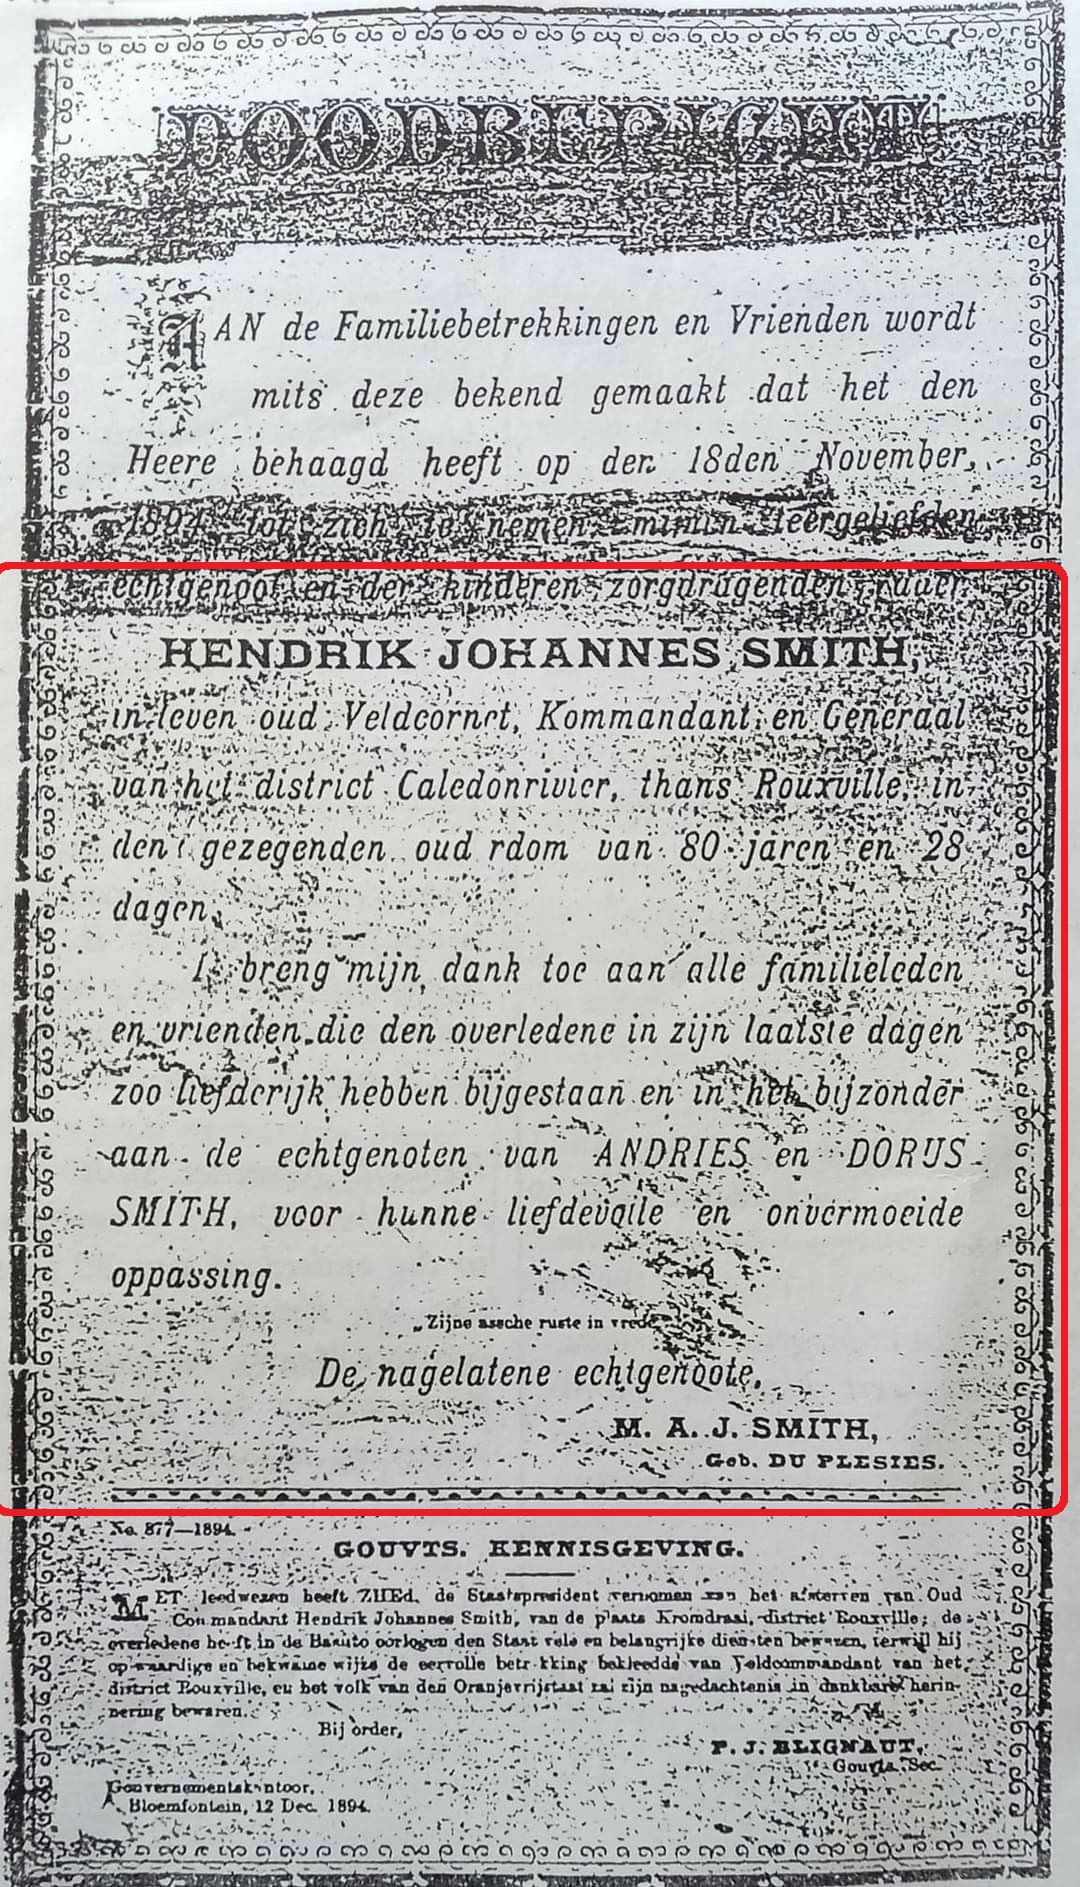 DOODBERICHT
AAN de Familiebetrekkingen en Vrienden wordt
mits deze bekend gemaakt dat het den
Heere behaagd heeft op den 18den November,
1894 tot zich te nemen mijnen teergeliefden
echtgenoot en der kinderen zorgdragenden vader
HENDRIK JOHANNES SMITH,
in leven oud Veldcornet, Kommandant en Generaal
van het district Caledonrivier, thans Rouxville, in
den gezegenden oud rdom van 80 jaren en 28
dagen.
Ik breng mijn dank toe aan alle familieleden
en vrienden die den overledene in zijn laatste dagen
zoo liefderijk hebben bijgestaan en in het bijzonder
aan de echtgenoten van ANDRIES en DORUS
SMITH, voor hunne liefdevolle en onvermoeide
oppassing.
„Zijne assche ruste in vrede
De nagelatene echtgenoote,
M. A. J. SMITH,
Geb. DU PLESIES.
No. 877—1894.
GOUVTS. KENNISGEVING.
MET leedwezen heeft ZHEd. de Staatspresident vernomen van het afsterven van Oud
Commandant Hendrik Johannes Smith, van de plaats Kromdraai, district Rouxville; de
overledene heeft in de Basuto oorlogen den Staat vele en belangrijke diensten bewezen, terwijl hij
op waardige en bekwame wijze de eervolle betrekking bekleedde van Veldcommandant van het
district Rouxville, en het volk van den Oranjevrijstaat zal zijn nagedachtenis in dankbare herin-
nering bewaren.
Bij order,
P. J. BLIGNAUT,
Gouvts. Sec.
Gouvernementskantoor,
Bloemfontein, 12 Dec. 1894.